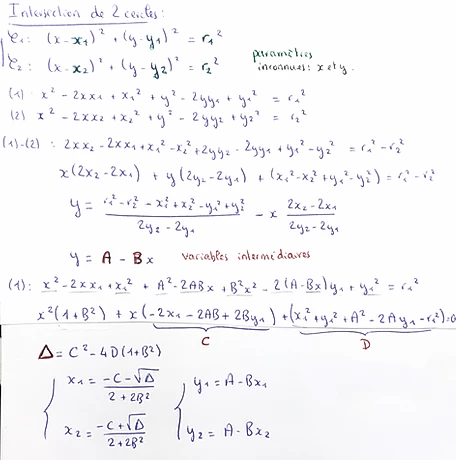 Intersection de 2 cercles:
C1: (x-x1)² + (y-y1)² = r1²
C2: (x-x2)² + (y-y2)² = r2²
paramètres
inconnues: x et y.
(1) x² - 2xx1 + x1² + y² - 2yy1 + y1² = r1²
(2) x² - 2xx2 + x2² + y² - 2yy2 + y2² = r2²
(1)-(2): 2xx2 - 2xx1 + x1² - x2² + 2yy2 - 2yy1 + y1² - y2² = r1² - r2²
x(2x2 - 2x1) + y(2y2 - 2y1) + (x1² - x2² + y1² - y2²) = r1² - r2²
y = (r1² - r2² - x1² + x2² - y1² + y2²)/(2y2 - 2y1) - x (2x2 - 2x1)/(2y2 - 2y1)
y = A - Bx variables intermédiaires
(1): x² - 2xx1 + x1² + A² - 2ABx + B²x² - 2(A-Bx)y1 + y1² = r1²
x²(1+B²) + x(-2x1 - 2AB + 2By1) + (x1² + y1² + A² - 2Ay1 - r1²) = 0
C D
Δ = C² - 4D(1+B²)
x1 = (-C-√Δ)/(2+2B²) y1 = A - Bx1
x2 = (-C+√Δ)/(2+2B²) y2 = A - Bx2